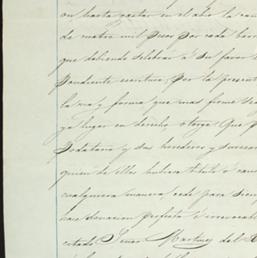 en hasta gastar en el año la can
de cuatro mil pesos por cada
que debiendo celebrar á su favor
pondiente escritura, por la present
la via y forma que mas firme
ya lugar en derecho, otorga Que
y sus herederos y sucesor
quien de ellos hubiere título ó cau
cualquiera manera, cede para siem
hace donacion perfecta é irrevocab
citado Señor Martinez del R